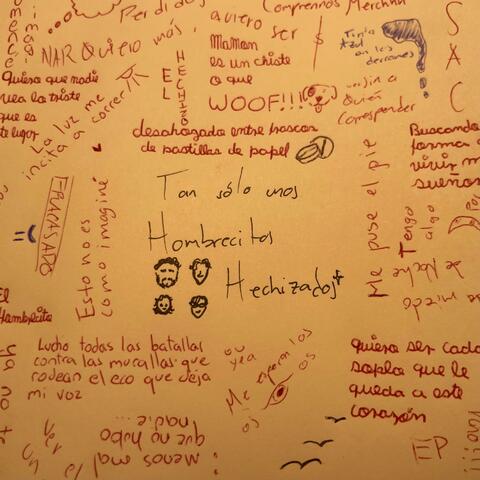 Perdidos
quiero ser
Comprennos Merchan
NAR
Quiero más,
Quisiera que nadie
vea lo triste
que es
este lugar
La luz me
incita a correr
EL
HECHIZO
Maman
es un chiste
o que
WOOF!!!
$
Tinta
Azul
en los
derrames
Virgin a
Quién
Corresponder
S
A
C
deshojado entre frascos
de pastillas de papel
Buscando
forma
vivir m
sueños
FRACASADO
=)
Esto no es
como imaginé
Tan sólo unos
Hombrecitos
Hechizados
Me puse el pie
Tengo
algo
El
Hombrecito
Lucho todas las batallas
contra las murallas que
rodean el eco que deja
mi voz
ou
yea
Me esperan los
os
quiero ser cada
sopla que le
queda a este
corazón
Menos mal
que no hubo
nadie...
EP